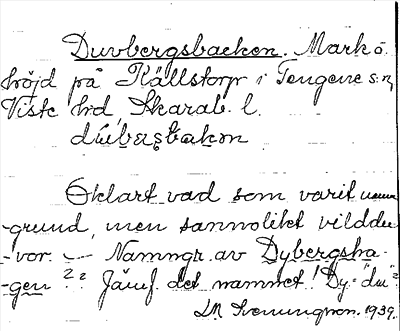 Duvbergsbacken. Mark o.
höjd på Källstorp i Tengene s:n,
Viste hd, Skarab. l.
dúbersbakɑn
Oklart vad som varit namn-
-grund, men sannolikt vilddu-
-vor. — Namngr. av Dybergsha-
-gen?? Jämf. det namnet! Dy- "du"?
LM Svenungson. 1939.